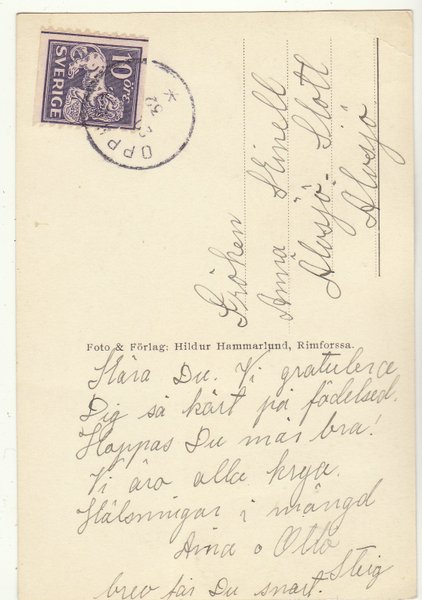 10 ÖRE
SVERIGE
OPP
32
Fröken
Anna
Älvsjö-Slott
Älvsjö
Foto & Förlag: Hildur Hammarlund, Rimforssa.
Kära Du. Vi gratulerca
Dig så kärt på födelsed.
Hoppas Du mår bra!
Vi äro alla krya.
Hälsningar i mängd
Aina o Otto
Stig
brev får Du snart.